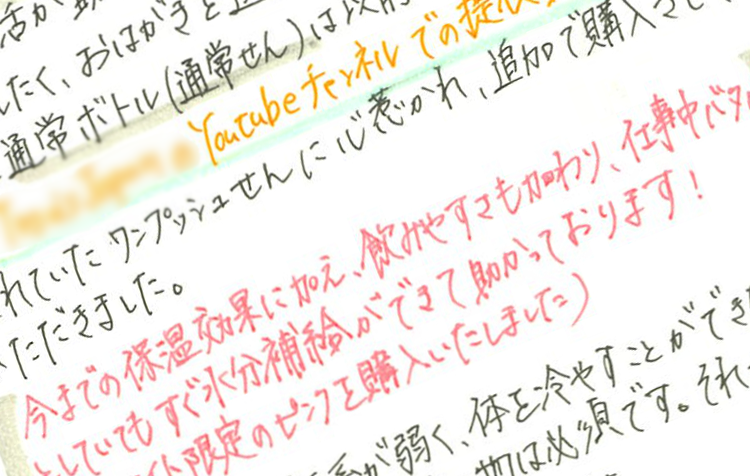 したく、おはがきと
通常ボトル(通常せん)は以前
Youtubeチャンネルでの提供
れていたワンプッシュせんに心惹かれ、追加で購入させ
いただきました。
今までの保温効果に加え、飲みやすさも加わり、仕事中バタ
としていてもすぐ水分補給ができて助かっております!
限定のピンクを購入いたしました)
が弱く、体を冷やすことができ
物は必須です。それ